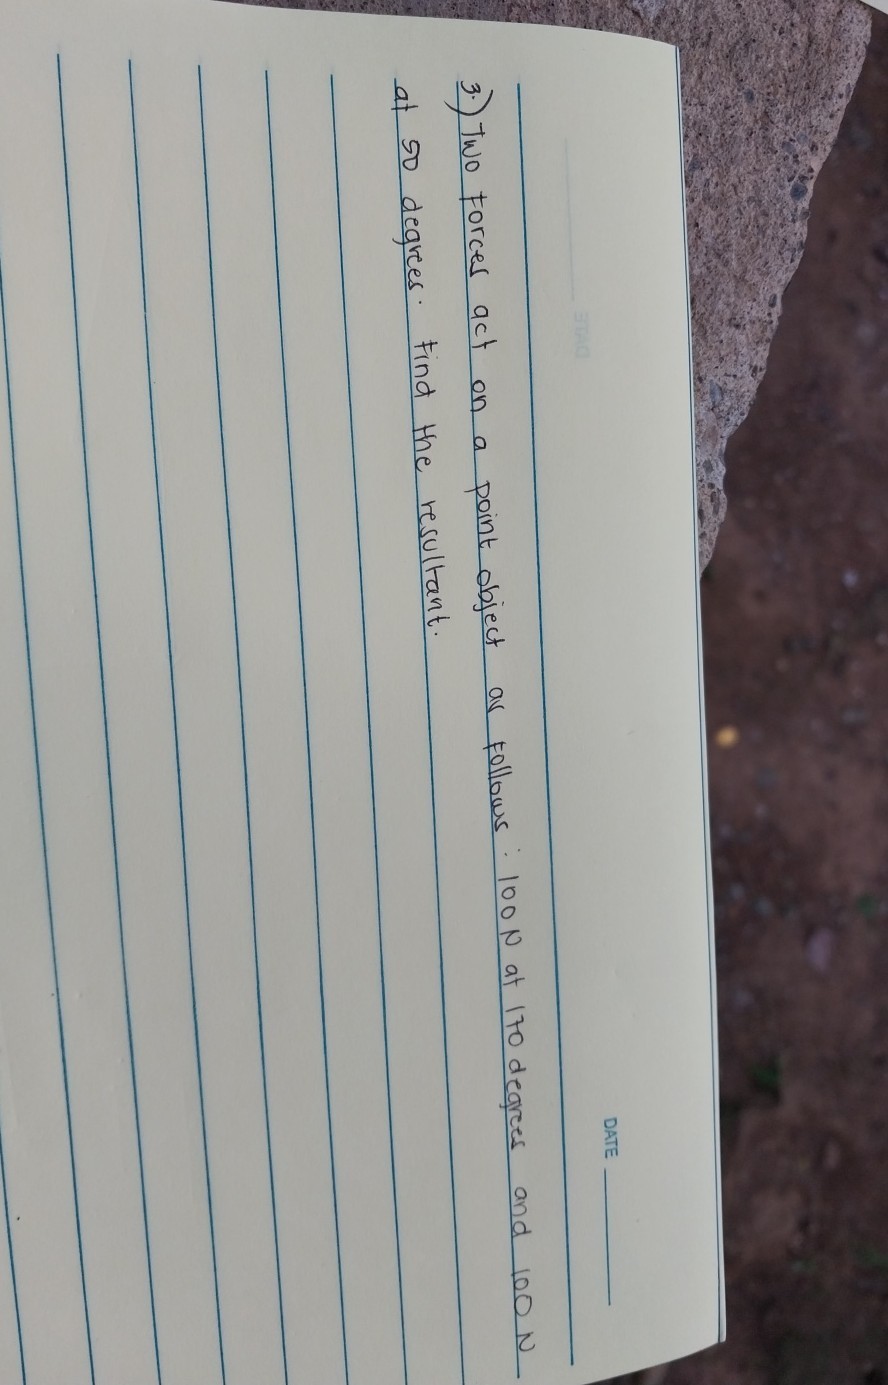 DATE
3.) Two forces act on a point object as follows : 100 N at 170 degrees and 100 N
at 50 degrees. Find the resultant.